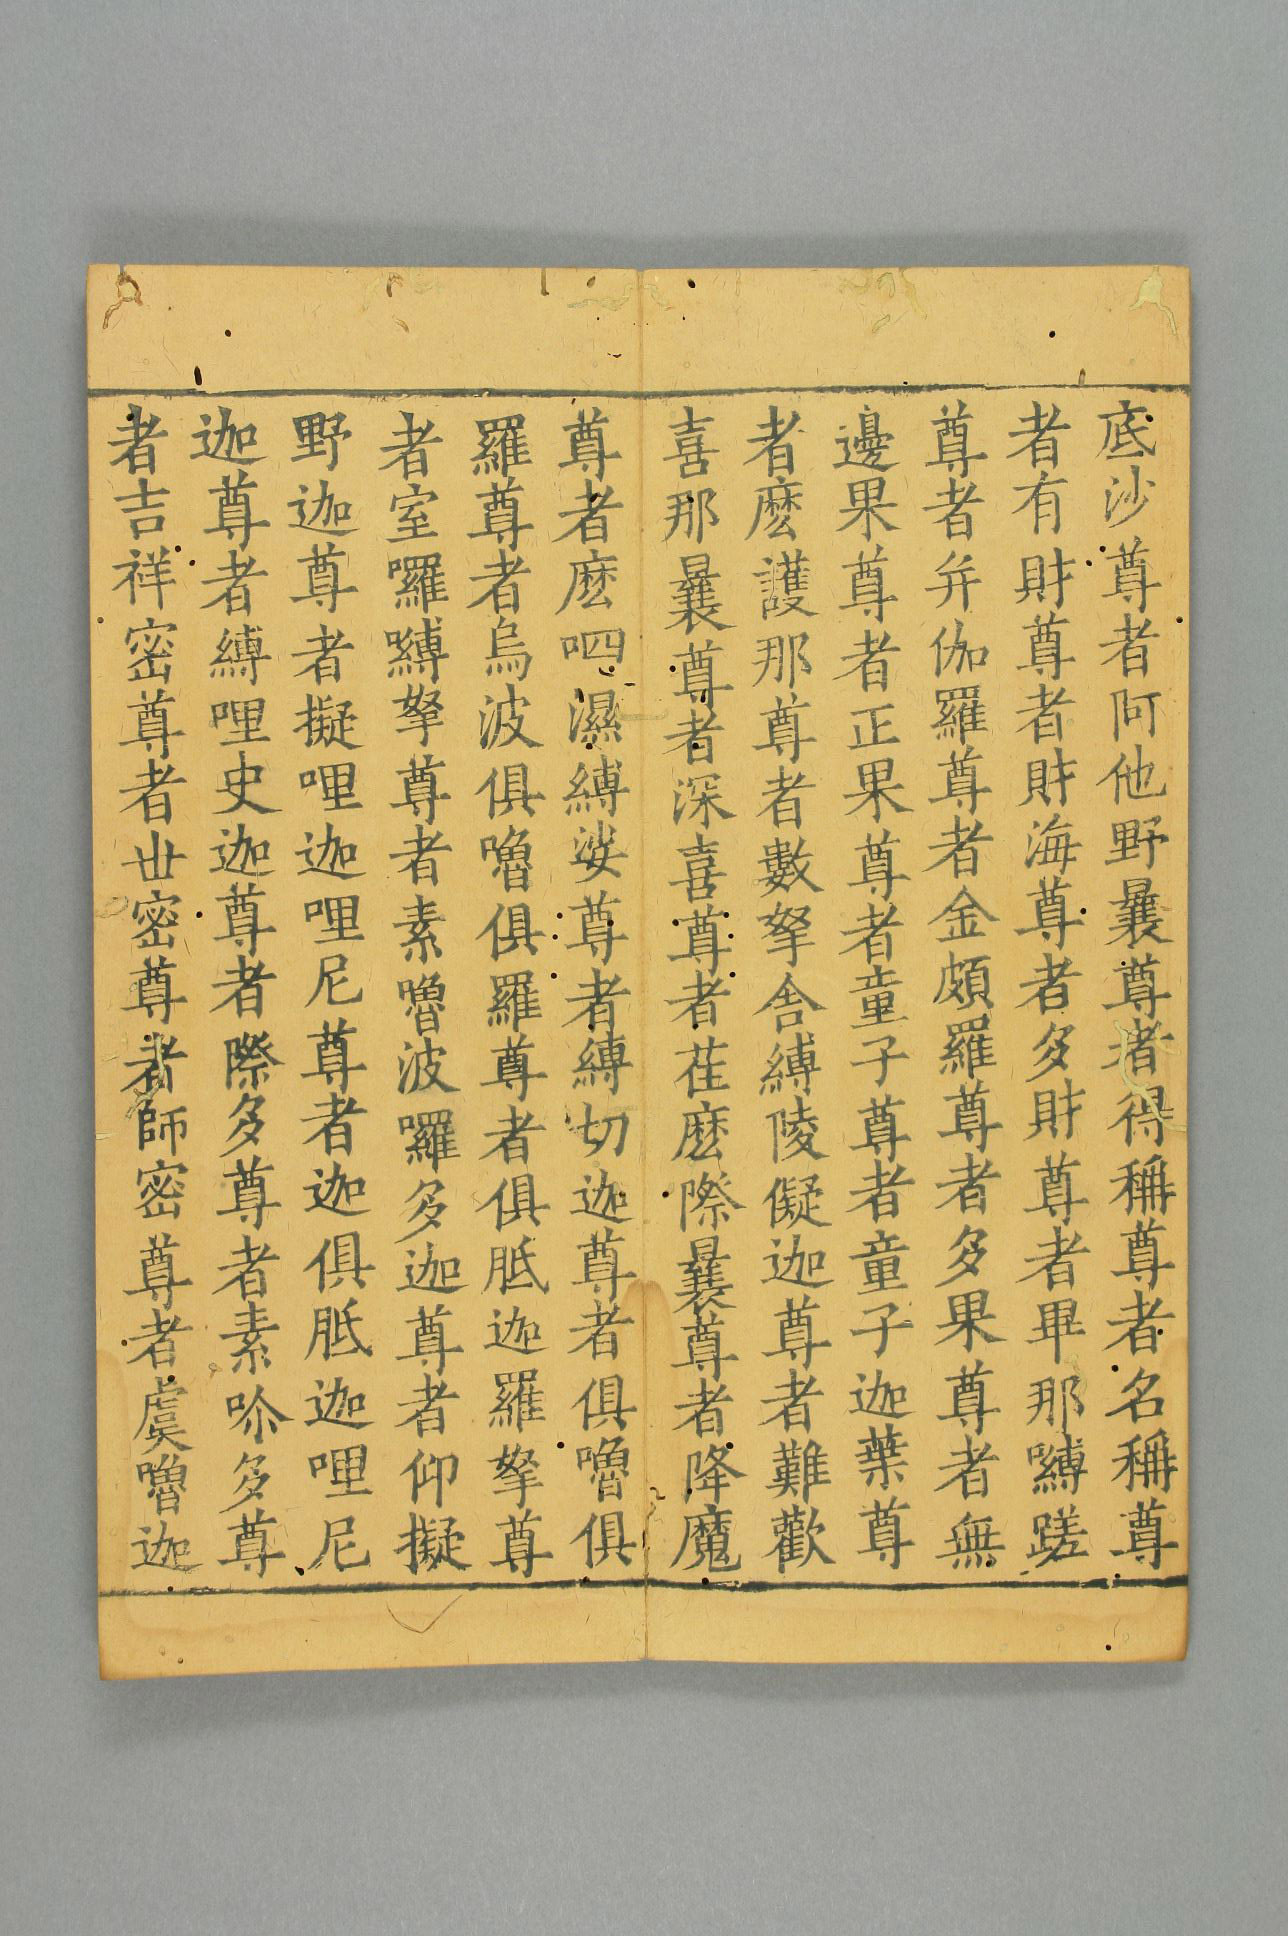 底沙尊者阿他野曩尊者得稱尊者名稱尊
者有財尊者財海尊者多財尊者畢那嚩蹉
尊者并伽羅尊者金頗羅尊者多果尊者無
邊果尊者正果尊者童子尊者童子迦葉尊
者麽護那尊者數拏舍縛倰儗迦尊者難歡
喜那曩尊者深喜尊者荏麽際曩尊者降魔
尊者麽呬濕縛娑尊者縛切迦尊者俱嚕俱
羅尊者烏波俱嚕俱羅尊者俱胝迦羅拏尊
者室囉嚩拏尊者素嚕波囉多迦尊者仰擬
野迦尊者擬哩迦哩尼尊者迦俱胝迦哩尼
迦尊者縛哩史迦尊者際多尊者素哆多尊
者吉祥密尊者丗密尊者師密尊者虞嚕迦